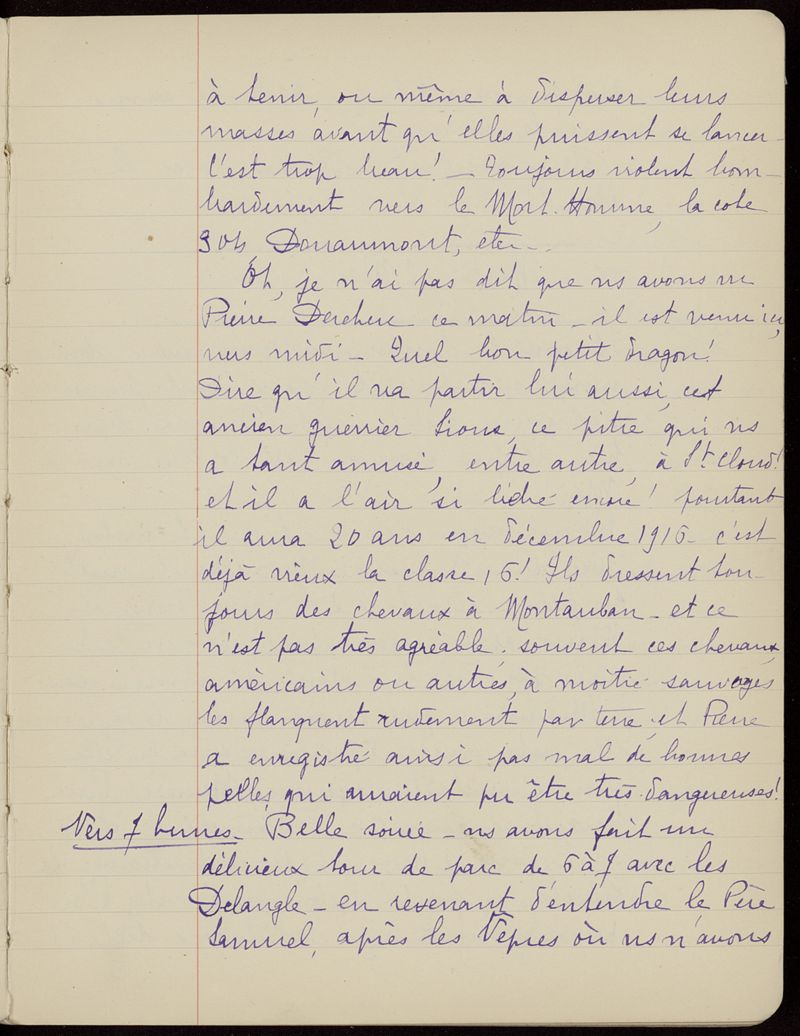 à tenir, ou même à disperser leurs
masses avant qu'elles puissent se lancer -
C'est trop beau! - Toujours violent bom-
bardement vers le Mort-Homme, la cote
304, Douaumont, etc - -
Oh, je n'ai pas dit que ns avons vu
Pierre ce matin - il est venu ici,
vers midi - Quel bon petit dragon!
Dire qu'il va partir lui aussi, cet
ancien guerrier Sioux, ce pitre, qui ns
a tant amusé, entre autre, à St Cloud!
et il a l'air si encore! pourtant
il aura 20 ans en décembre 1916 - c'est
déjà vieux la classe 16! Ils dressent tou-
jours des chevaux à Montauban - et ce
n'est pas très agréable; souvent ces chevaux
américains ou autres, à moitié sauvages
les flanquent rudement par terre, et Pierre
a enregistré ainsi pas mal de bonnes
pelles, qui auraient pu être très dangereuses!
Vers 7 heures - Belle soirée - ns avons fait un
délicieux tour de parc de 6 à 7 avec les
Delangle - en revenant d'entendre le Père
Samuel, après les Vêpres où ns n'avons